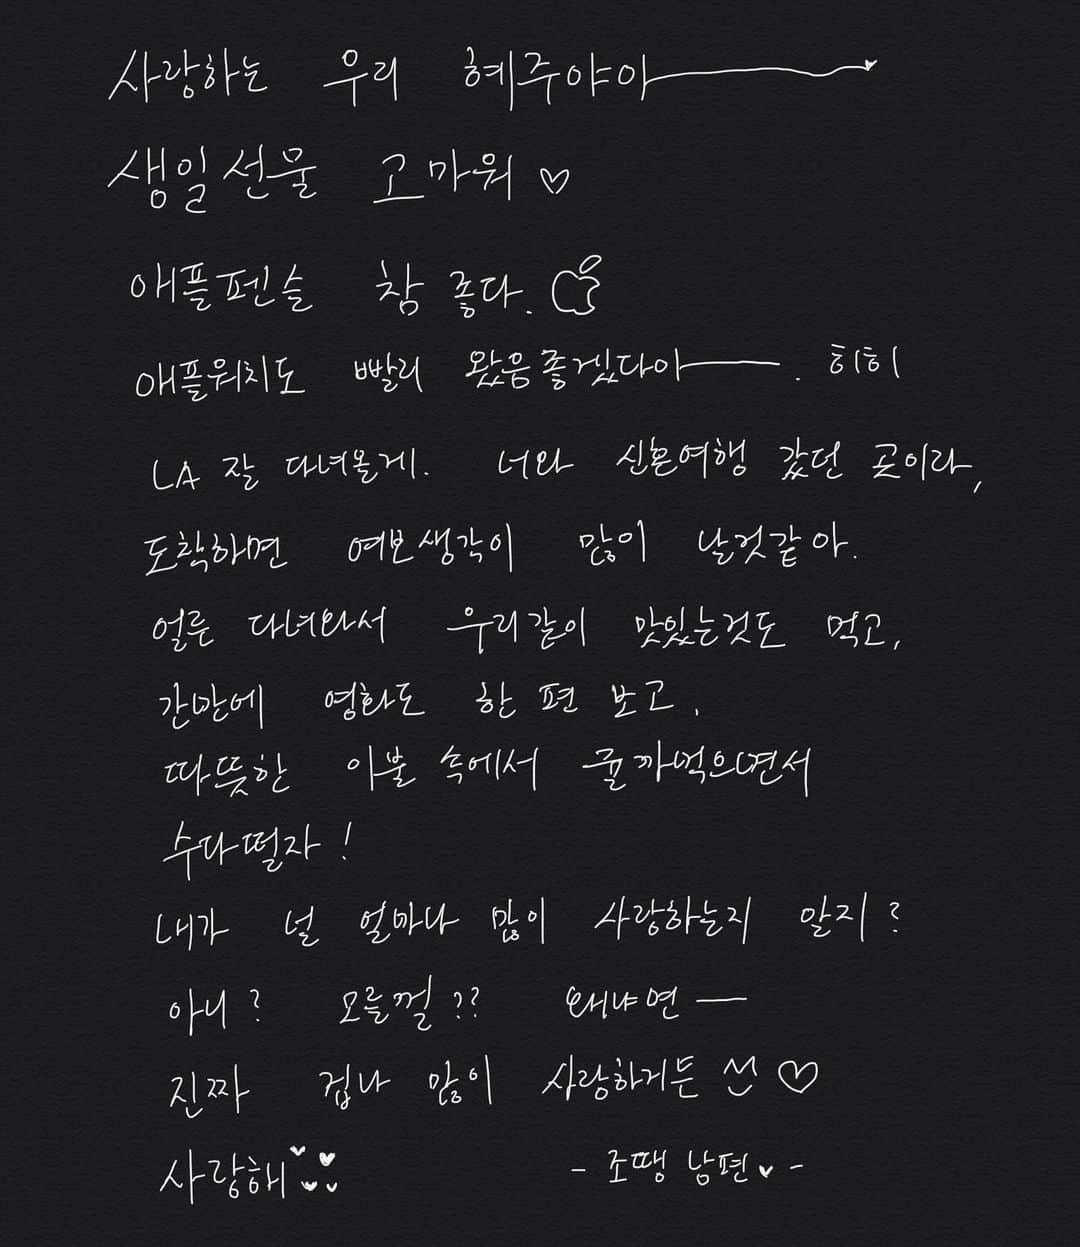 사랑하는 우리 혜주야아
생일선물 고마워♡
애플펜슬 참 좋다.
애플워치도 빨리 왔음좋겠다아ㅡ. 히히
LA 잘 다녀올게. 너와 신혼여행 갔던 곳이라,
도착하면 여보생각이 많이 날것같아.
얼른 다녀와서 우리같이 맛있는것도 먹고,
간만에 영화도 한 편 보고,
따뜻한 이불 속에서 귤까먹으면서
수다떨자!
내가 널 얼마나 많이 사랑하는지 알지?
아니? 모를껄?? 왜냐면ㅡ
진짜 겁나 많이 사랑하거든 ♡
사랑해
- 조땡 남편♥ -